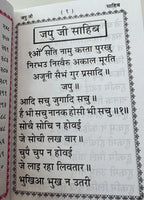 जपु जी
( १ )
साहिब
जपु जी साहिब
१ओं सति नामु करता पुरखु
निरभउ निरवैरु अकाल मूरति
अजूनी सैभं गुर प्रसादि॥
जपु॥
आदि सचु जुगादि सचु॥
है भी सचु नानक होसी भी सचु॥१॥
सोचै सोचि न होवई
जे सोची लख वार॥
चुपै चुप न होवई
जे लाइ रहा लिवतार॥
भुखिआ भुख न उतरी